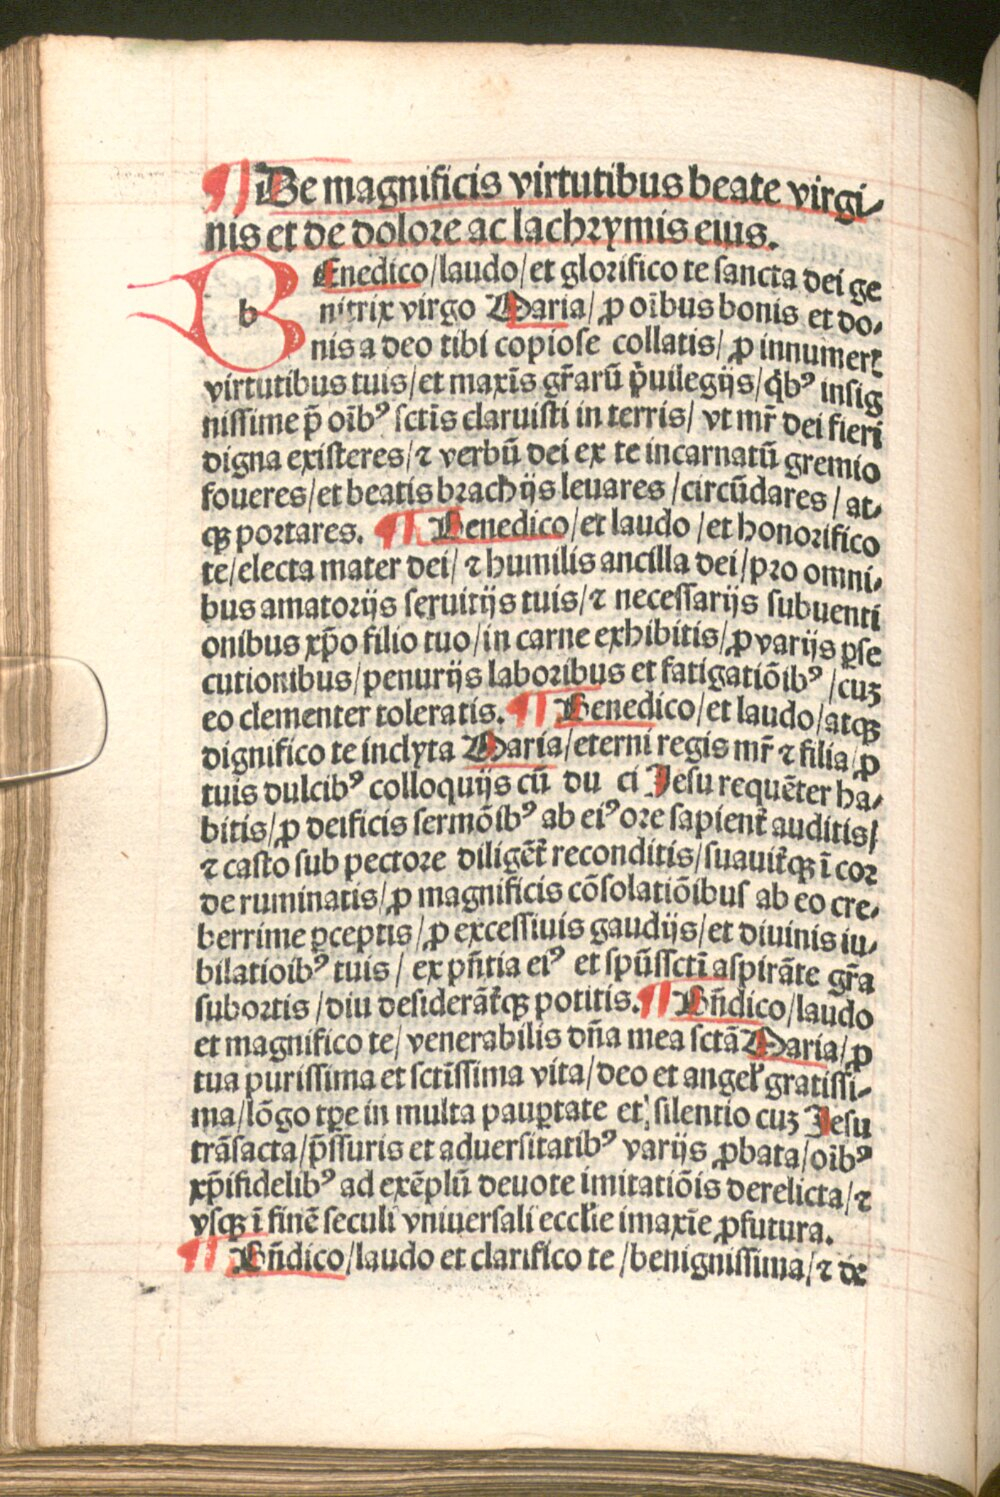 ¶ De magnificis virtutibus beate virgi⸗
nis et de dolore ac lachrymis eius.
bEnedico/laudo/et glorifico te sancta dei ge
nitrix virgo Maria/ ꝓ oı̄bus bonis et do⸗
nis a deo tibi copiose collatis/ ꝓ innumerꝭ
virtutibus tuis/et maxı̄s gr̄arū p̄uilegijs/q̇bꝰ insig
nissime p̄ oı̄bꝰ sctı̄s claruisti in terris/ vt mr̄ dei fieri
digna existeres/⁊ verbū dei ex te incarnatū gremio
foueres/et beatis brachijs leuares/circūdares/at⸗
qꝫ portares. ¶ Benedico/et laudo/et honorifico
te/electa mater dei/ ⁊ humilis ancilla dei/pro omni⸗
bus amatorijs seruitijs tuis/⁊ necessarijs subuenti
onibus xp̄o filio tuo/in carne exhibitis/ꝓ varijs ꝑse
cutionibus/penurijs laboribus et fatigatiōibꝰ/cuꝫ
eo clementer toleratis. ¶ Benedico/et laudo/atqꝫ
dignifico te inclyta Maria/eterni regis mr̄ ⁊ filia/ꝓ
tuis dulcibꝰ colloquijs cū du ci Jesu requēter ha⸗
bitis/ꝓ deificis sermōibꝰ ab eiꝰ ore sapient̄ auditis/
⁊ casto sub pectore diligēt̄ reconditis/suauit̄qꝫ ı̄ cor
de ruminatis/ꝓ magnificis cōsolatiōibus ab eo cre⸗
berrime ꝑceptis/ꝓ excessiuis gaudijs/et diuinis iu⸗
bilatioibꝰ tuis/ ex pn̄tia eiꝰ et spūssctı̄ aspirāte gr̄a
subortis/diu desiderāt̄qꝫ potitis. ¶ Bn̄dico/laudo
et magnifico te/ venerabilis dn̄a mea sctā Maria/ꝓ
tua purissima et sctı̄ssima vita/deo et angel̄ gratissi⸗
ma/lōgo tꝑe in multa pauꝑtate et silentio cuꝫ Jesu
trāsacta/p̄ssuris et aduersitatibꝰ varijs ꝓbata/oı̄bꝰ
xp̄ifidelibꝰ ad exēplū deuote imitatiōis derelicta/⁊
vsqꝫ ı̄ finē seculi vniuersali eccl̄ie imaxı̄e ꝓfutura.
¶ Bn̄dico/laudo et clarifico te/benignissima/⁊ de